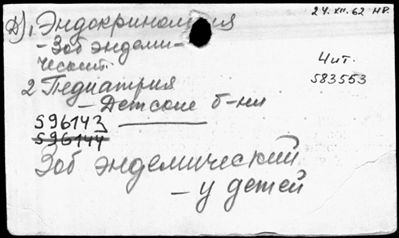 Д) 1, Эндокринология
24.XII.62 НР.
– Зоб эндеми-
ческий.
Чит.
583553
2 Педиатрия
– Детские б-ни
596143
596144
Зоб эндемический
– у детей